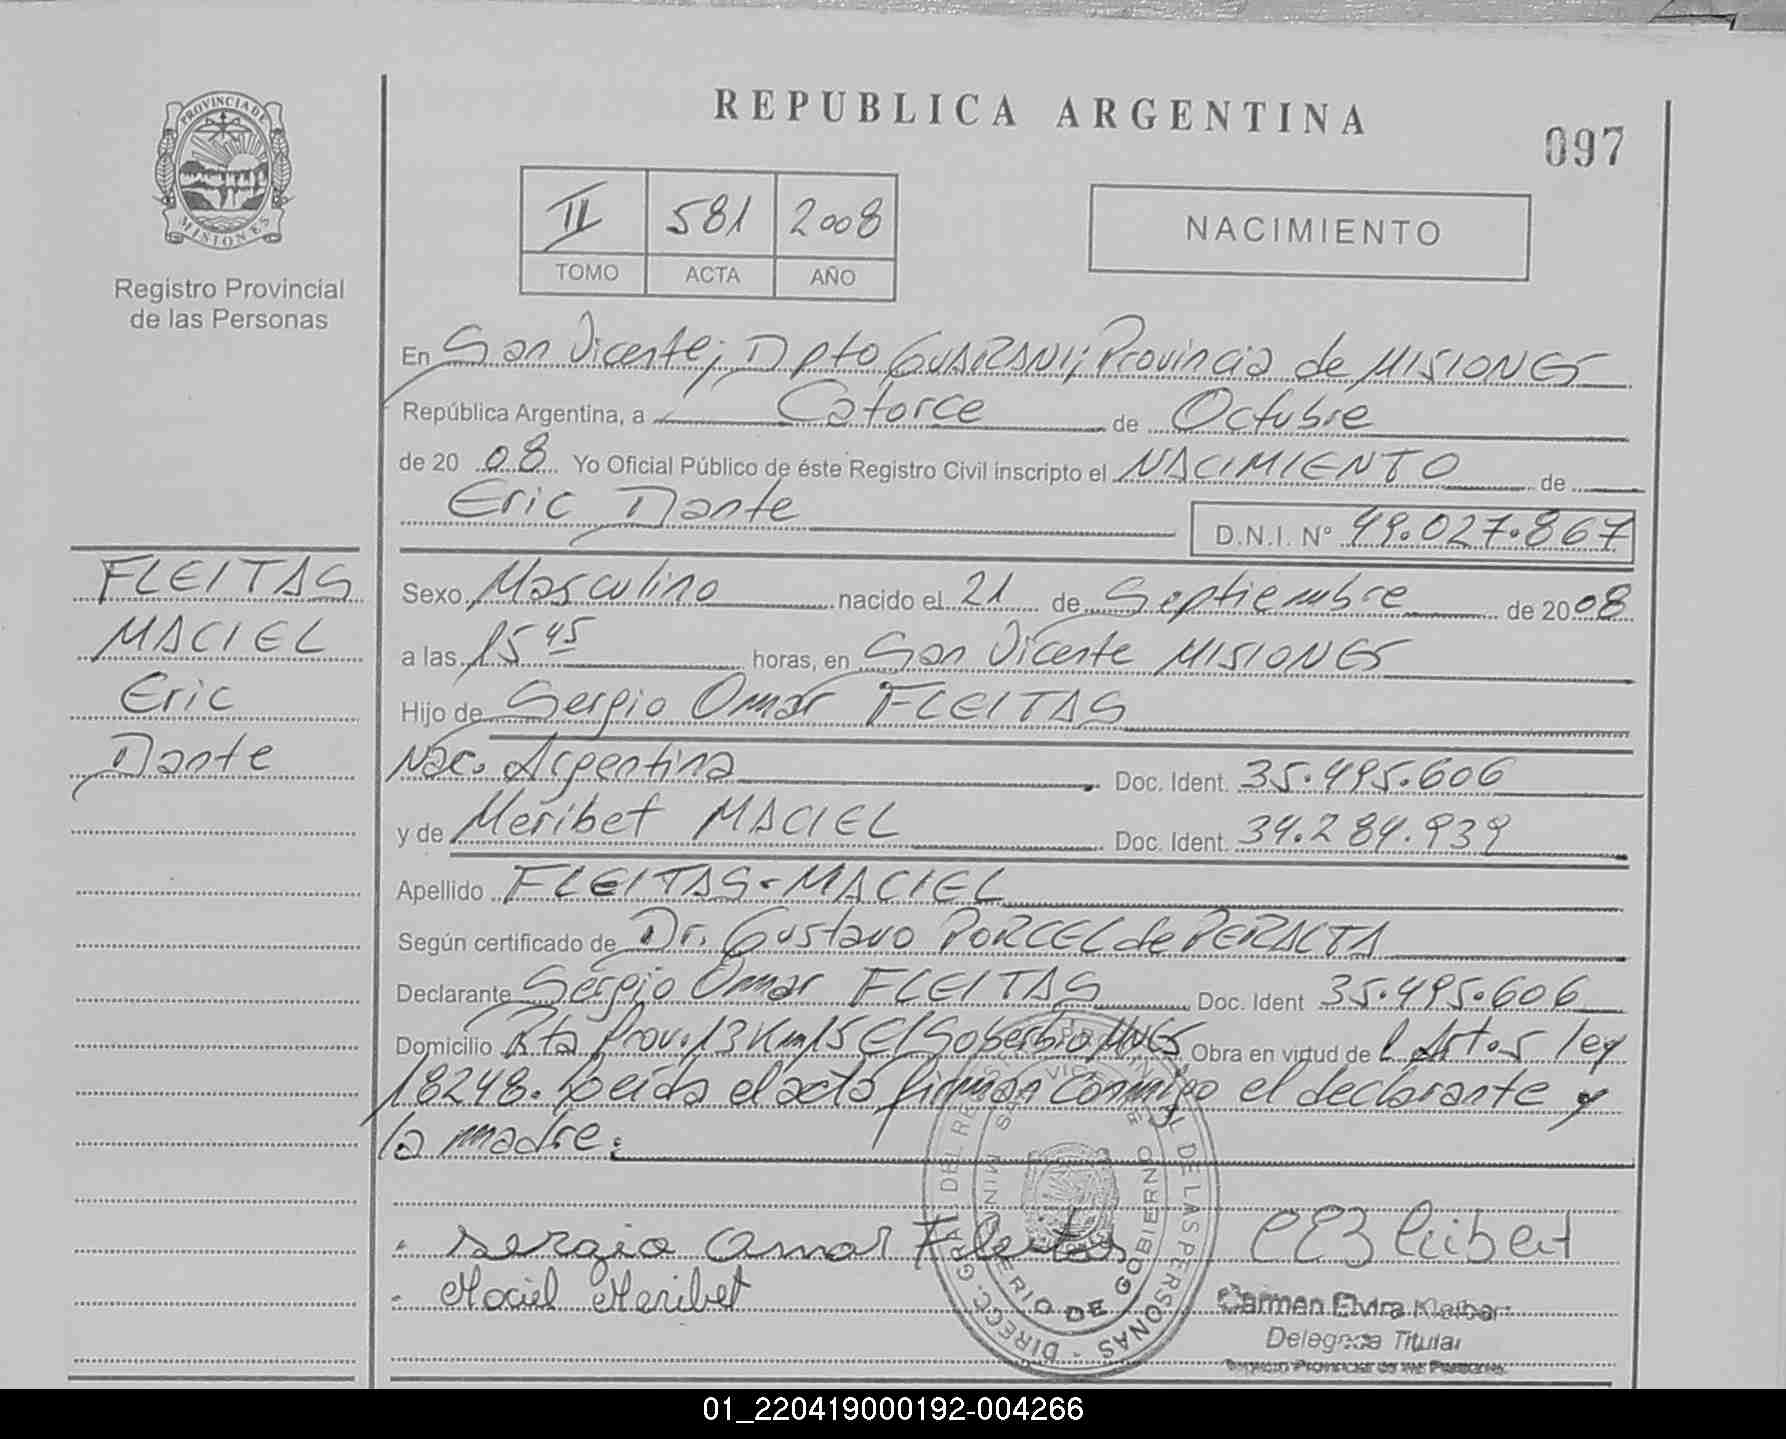 REPUBLICA ARGENTINA
097
PROVINCIA DE
MISIONES
Registro Provincial
de las Personas
II 581 2008
TOMO ACTA AÑO
NACIMIENTO
En San Vicente; Dpto GUARANI; Provincia de MISIONES
República Argentina, a Catorce de Octubre
de 2008 Yo Oficial Público de éste Registro Civil inscripto el NACIMIENTO de
Eric Dante
D.N.I. Nº 49.027.867
FLEITAS
MACIEL
Eric
Dante
Sexo Masculino nacido el 21 de Septiembre de 2008
a las 15 45 horas, en San Vicente MISIONES
Hijo de Sergio Omar FLEITAS
Nac. Argentina Doc. Ident. 35.495.606
y de Meribet MACIEL Doc. Ident. 34.284.939
Apellido FLEITAS-MACIEL
Según certificado de Dr. Gustavo PORCEL de PERALTA
Declarante Sergio Omar FLEITAS Doc. Ident 35.495.606
Domicilio Rta Prov. 13 Km 15 El Soberbio Mnes Obra en virtud de l Art. 5 ley
18248. Leida el acta firman conmigo el declarante y
la madre.
Sergio Omar Fleitas
Maciel Meribet
Carmen Elvira
Delegada Titular
Registro Provincial de las Personas
MINISTERIO DE GOBIERNO
DE LAS PERSONAS
01_220419000192-004266